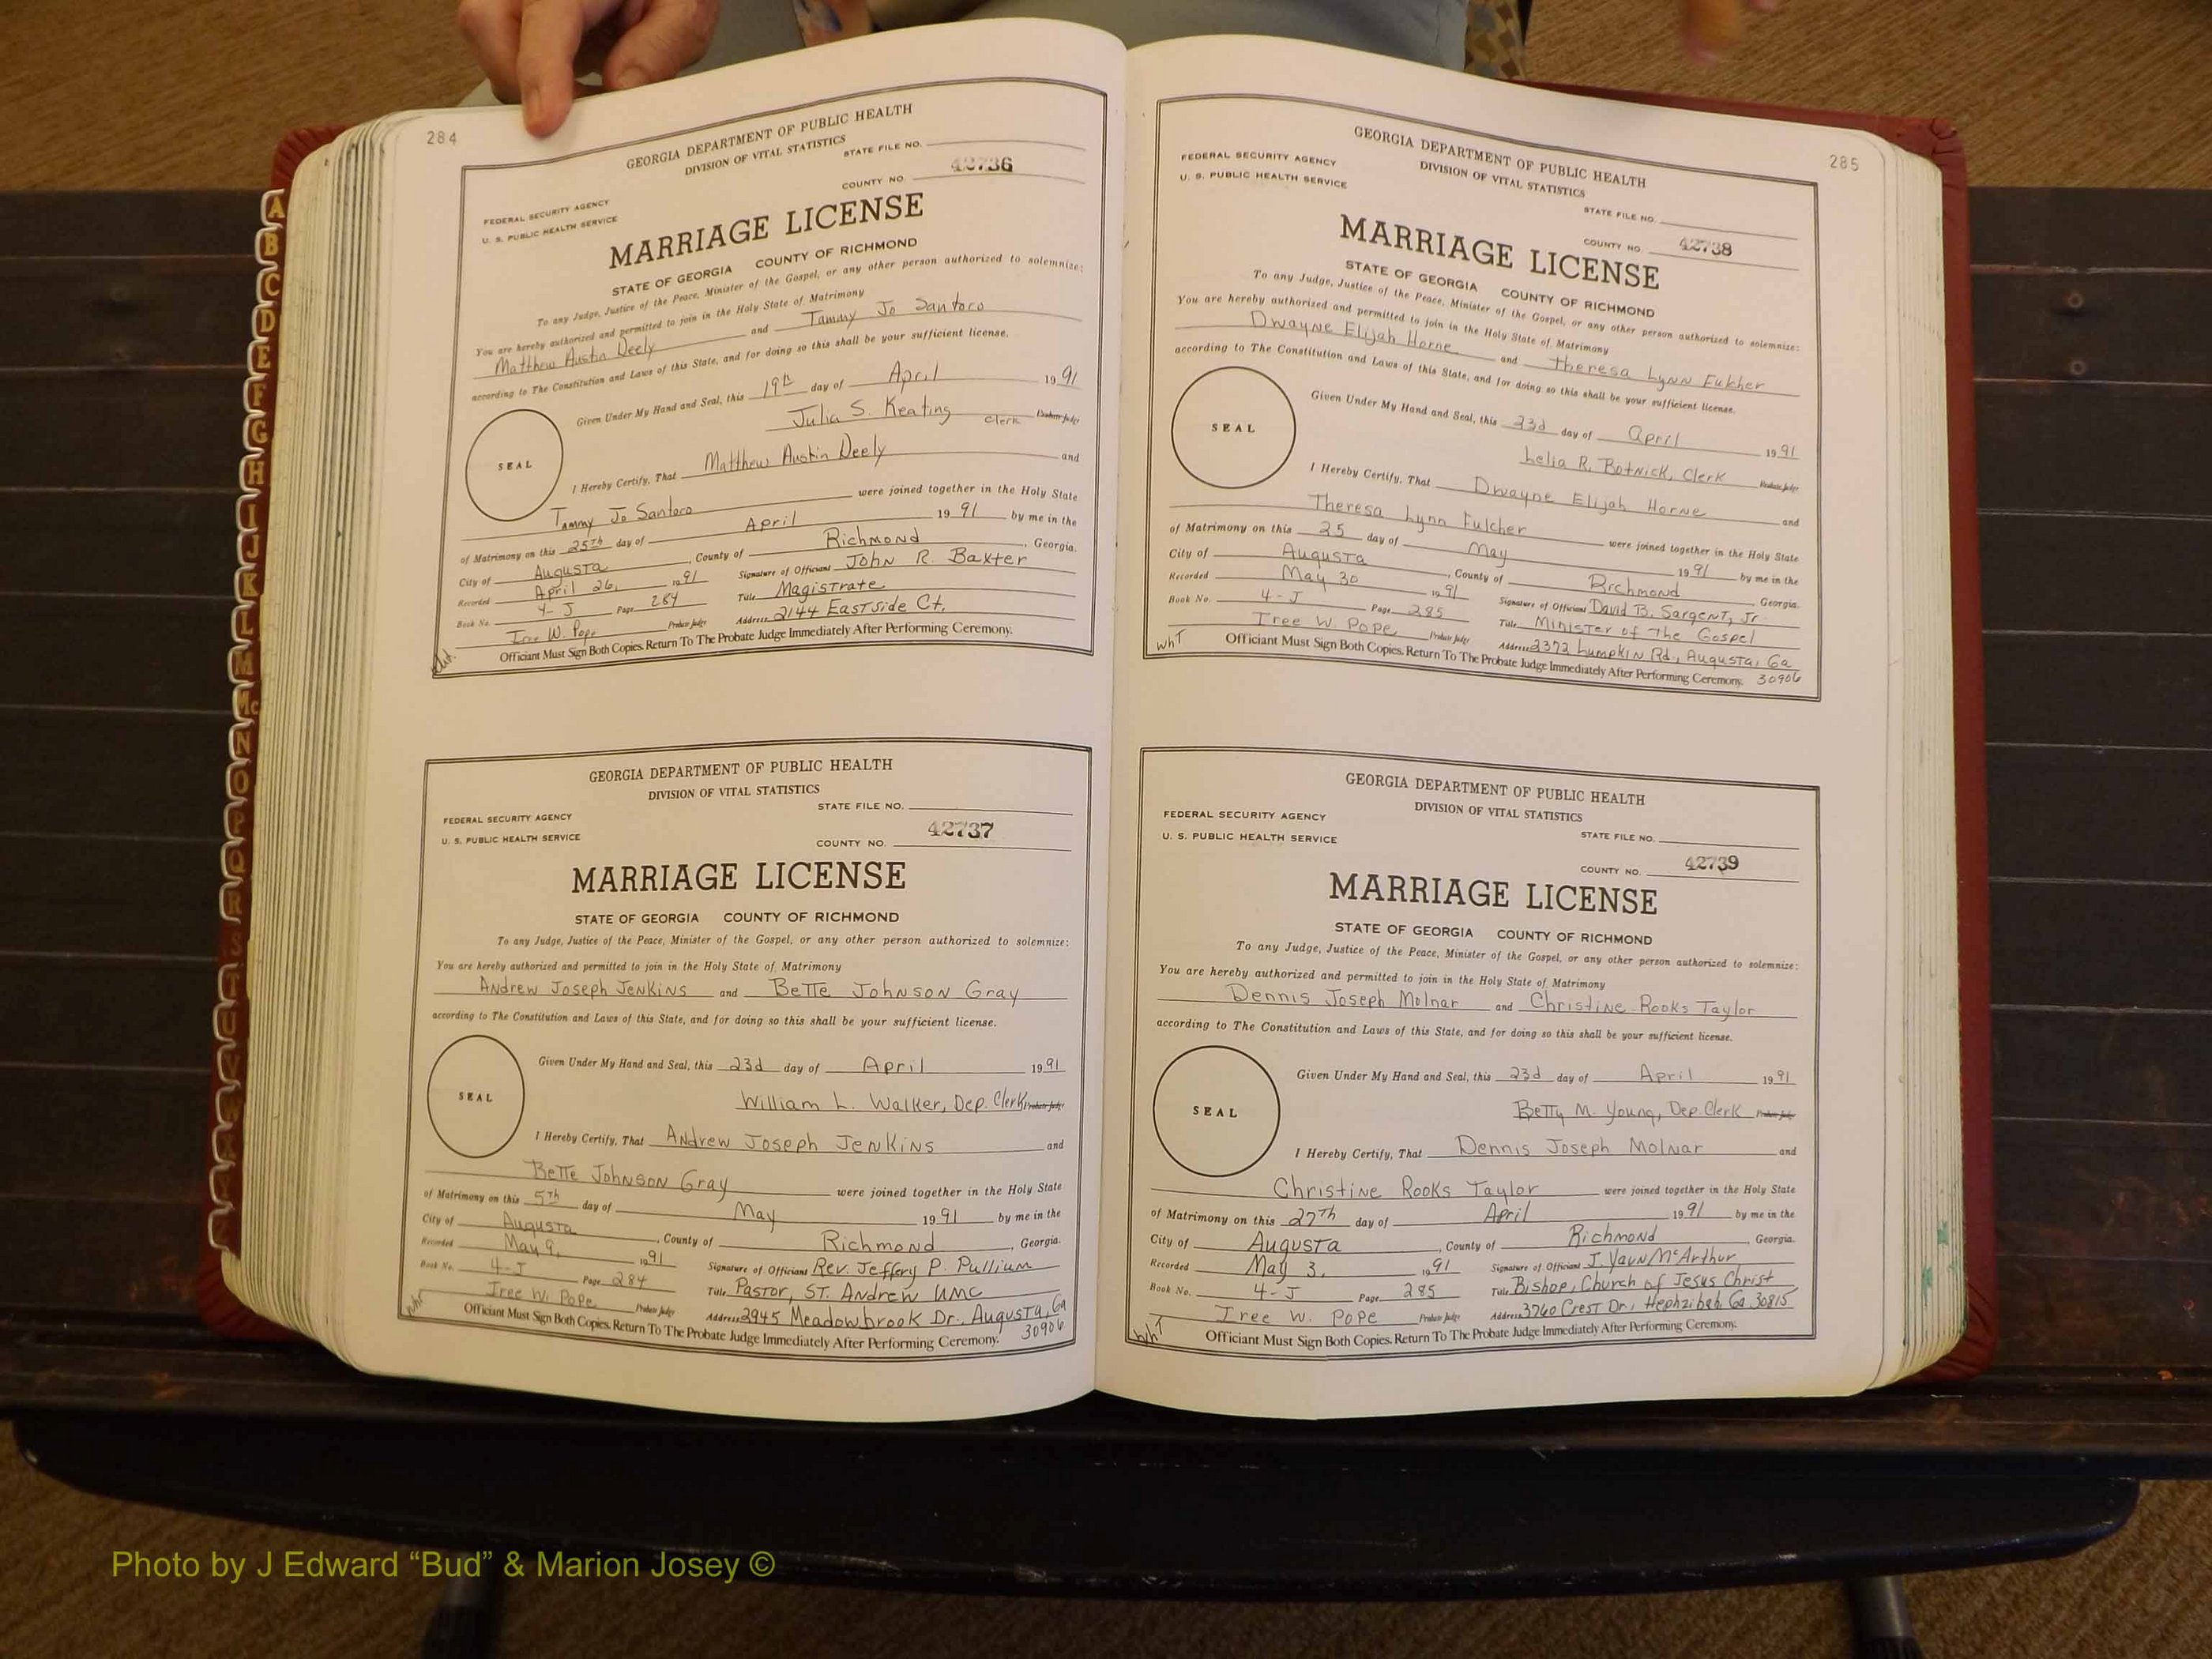 284
GEORGIA DEPARTMENT OF PUBLIC HEALTH
DIVISION OF VITAL STATISTICS
STATE FILE NO.
FEDERAL SECURITY AGENCY
U. S. PUBLIC HEALTH SERVICE
COUNTY NO. 42736
MARRIAGE LICENSE
STATE OF GEORGIA COUNTY OF RICHMOND
To any Judge, Justice of the Peace, Minister of the Gospel, or any other person authorized to solemnize:
You are hereby authorized and permitted to join in the Holy State of Matrimony
Matthew Austin Deely and Tammy Jo Santoro
according to The Constitution and Laws of this State, and for doing so this shall be your sufficient license.
Given Under My Hand and Seal, this 19th day of April 1991
Julia S. Keating Clerk Probate Judge
SEAL
I Hereby Certify, That Matthew Austin Deely and
Tammy Jo Santoro were joined together in the Holy State
of Matrimony on this 25th day of April 1991 by me in the
City of Augusta, County of Richmond, Georgia.
Recorded April 26, 1991 Signature of Officiant John R. Baxter
Book No. 4-J Page 284 Title Magistrate
Iree W. Pope Probate Judge Address 2144 Eastside Ct.
Officiant Must Sign Both Copies. Return To The Probate Judge Immediately After Performing Ceremony.
GEORGIA DEPARTMENT OF PUBLIC HEALTH
DIVISION OF VITAL STATISTICS
STATE FILE NO.
FEDERAL SECURITY AGENCY
U. S. PUBLIC HEALTH SERVICE
COUNTY NO. 42737
MARRIAGE LICENSE
STATE OF GEORGIA COUNTY OF RICHMOND
To any Judge, Justice of the Peace, Minister of the Gospel, or any other person authorized to solemnize:
You are hereby authorized and permitted to join in the Holy State of Matrimony
Andrew Joseph Jenkins and Bette Johnson Gray
according to The Constitution and Laws of this State, and for doing so this shall be your sufficient license.
Given Under My Hand and Seal, this 23d day of April 1991
William L. Walker, Dep. Clerk Probate Judge
SEAL
I Hereby Certify, That Andrew Joseph Jenkins and
Bette Johnson Gray were joined together in the Holy State
of Matrimony on this 5th day of May 1991 by me in the
City of Augusta, County of Richmond, Georgia.
Recorded May 9, 1991 Signature of Officiant Rev. Jeffery P. Pullium
Book No. 4-J Page 284 Title Pastor, St. Andrew UMC
Iree W. Pope Probate Judge Address 2945 Meadowbrook Dr., Augusta, Ga
30906
wht Officiant Must Sign Both Copies. Return To The Probate Judge Immediately After Performing Ceremony.
285
GEORGIA DEPARTMENT OF PUBLIC HEALTH
DIVISION OF VITAL STATISTICS
FEDERAL SECURITY AGENCY
U. S. PUBLIC HEALTH SERVICE
STATE FILE NO.
COUNTY NO. 42738
MARRIAGE LICENSE
STATE OF GEORGIA COUNTY OF RICHMOND
To any Judge, Justice of the Peace, Minister of the Gospel, or any other person authorized to solemnize:
You are hereby authorized and permitted to join in the Holy State of Matrimony
Dwayne Elijah Horne and Theresa Lynn Fulcher
according to The Constitution and Laws of this State, and for doing so this shall be your sufficient license.
Given Under My Hand and Seal, this 23d day of April 1991
Lelia R. Botnick, Clerk Probate Judge
SEAL
I Hereby Certify, That Dwayne Elijah Horne and
Theresa Lynn Fulcher were joined together in the Holy State
of Matrimony on this 25 day of May 1991 by me in the
City of Augusta, County of Richmond, Georgia.
Recorded May 30 1991 Signature of Officiant David B. Sargent, Jr.
Book No. 4-J Page 285 Title Minister of The Gospel
Iree W. Pope Probate Judge Address 2372 Lumpkin Rd., Augusta, Ga
30906
wht Officiant Must Sign Both Copies. Return To The Probate Judge Immediately After Performing Ceremony.
GEORGIA DEPARTMENT OF PUBLIC HEALTH
DIVISION OF VITAL STATISTICS
FEDERAL SECURITY AGENCY
U. S. PUBLIC HEALTH SERVICE
STATE FILE NO.
COUNTY NO. 42739
MARRIAGE LICENSE
STATE OF GEORGIA COUNTY OF RICHMOND
To any Judge, Justice of the Peace, Minister of the Gospel, or any other person authorized to solemnize:
You are hereby authorized and permitted to join in the Holy State of Matrimony
Dennis Joseph Molnar and Christine Rooks Taylor
according to The Constitution and Laws of this State, and for doing so this shall be your sufficient license.
Given Under My Hand and Seal, this 23d day of April 1991
Betty M. Young, Dep. Clerk Probate Judge
SEAL
I Hereby Certify, That Dennis Joseph Molnar and
Christine Rooks Taylor were joined together in the Holy State
of Matrimony on this 27th day of April 1991 by me in the
City of Augusta, County of Richmond, Georgia.
Recorded May 3, 1991 Signature of Officiant J. Vaun McArthur
Book No. 4-J Page 285 Title Bishop, Church of Jesus Christ
Iree W. Pope Probate Judge Address 3760 Crest Dr., Hephzibah, Ga 30815
wht Officiant Must Sign Both Copies. Return To The Probate Judge Immediately After Performing Ceremony.
A
B
C
D
E
F
G
H
I
J
K
L
M
Mc
N
O
P
Q
R
S
T
U
V
W
Photo by J Edward “Bud” & Marion Josey ©